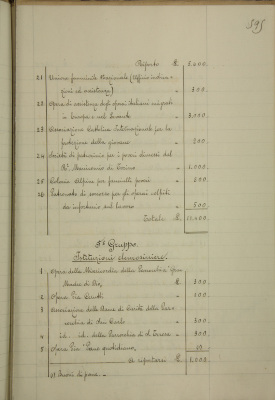 595
Riporto £ 5.400.
21 Unione femminile Nazionale (Ufficio indica-
zioni ed assistenza) " 300.
22 Opera di assistenza degli operai italiani emigrati
in Europa e nel Levante " 3.000.
23 Associazione Cattolica internazionale per la
protezione della giovane " 200.
24 Società di patrocinio pei poveri dimessi del
R. Manicomio di Torino " 1.000.
25 Colonie Alpine per fanciulli poveri " 500
26 Patronato di soccorso per gli operai colpiti
da infortunio sul lavoro " 500
Totale £
5° Gruppo.
Istituzioni elemosiniere.
1 Opera della Misericordia della Parrocchia Gran
Madre di Dio, £ 300.
2 Opera Pia " 100.
3 Associazione delle Dame di Carità della Parroc-
chia di San Carlo " 300.
4 id. id. della Parrocchia di S. Teresa " 300.
5 Opera Pia "Pane quotidiano"
A riportarsi £